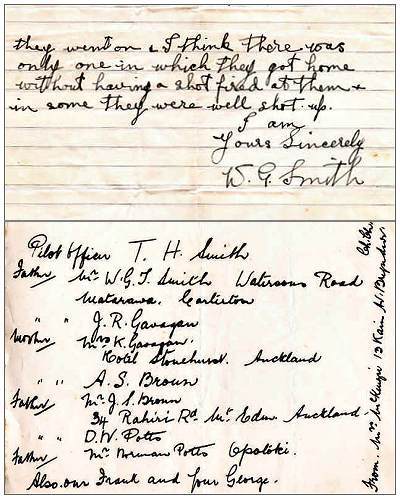 they went on & I think there was
only one in which they got home
without having a shot fired at them &
in some they were well shot up.
I am
Yours Sincerely
W. G. Smith
Pilot Officer T. H. Smith
Father Mr W.G.T Smith Watersons Road
Matarawa. Carterton
" " J. R. Gavagan
Mother Mrs K. Gavagan.
Hotel Stonehurst. Auckland
" " A. S. Broun
Father Mr J. S. Broun
34 Rahiri Rd Mt Eden Auckland
" " D. W. Potts
Father Mr Norman Potts Opotiki.
Also our Frank and your George.
From Mrs 13 Rain St.
Ch.Ch.